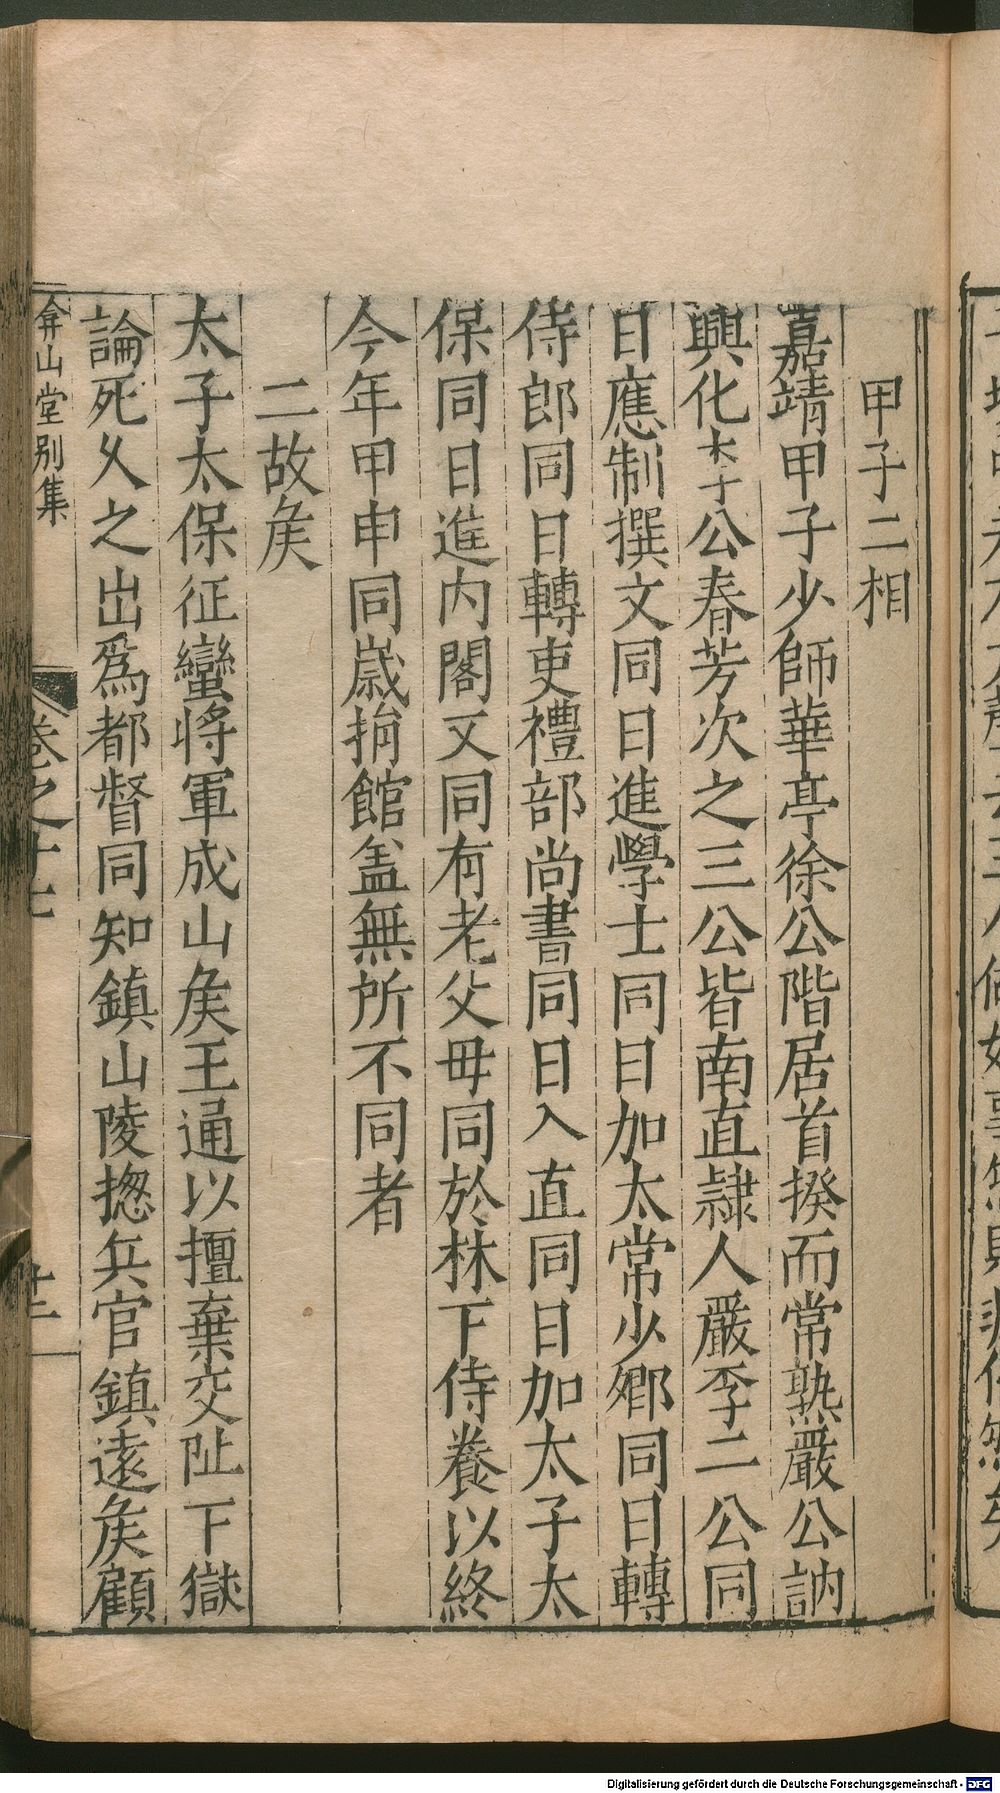 甲子二相
嘉靖甲子少師華亭徐公階居首揆而常熟嚴公訥
興化李公春芳次之三公皆南直隸人嚴李二公同
日應制撰文同日進學士同日加太常少卿同日轉
侍郎同日轉吏禮部尚書同日入直同日加太子太
保同日進內閣又同有老父母同於林下侍養以終
今年甲申同歲捐館盖無所不同者
二故矦
太子太保征蠻將軍成山矦王通以擅棄交阯下獄
論死乆之出爲都督同知鎮山陵揔兵官鎮遠矦顧
弇山堂別集
卷之十七
十二
Digitalisierung gefördert durch die Deutsche Forschungsgemeinschaft - DFG